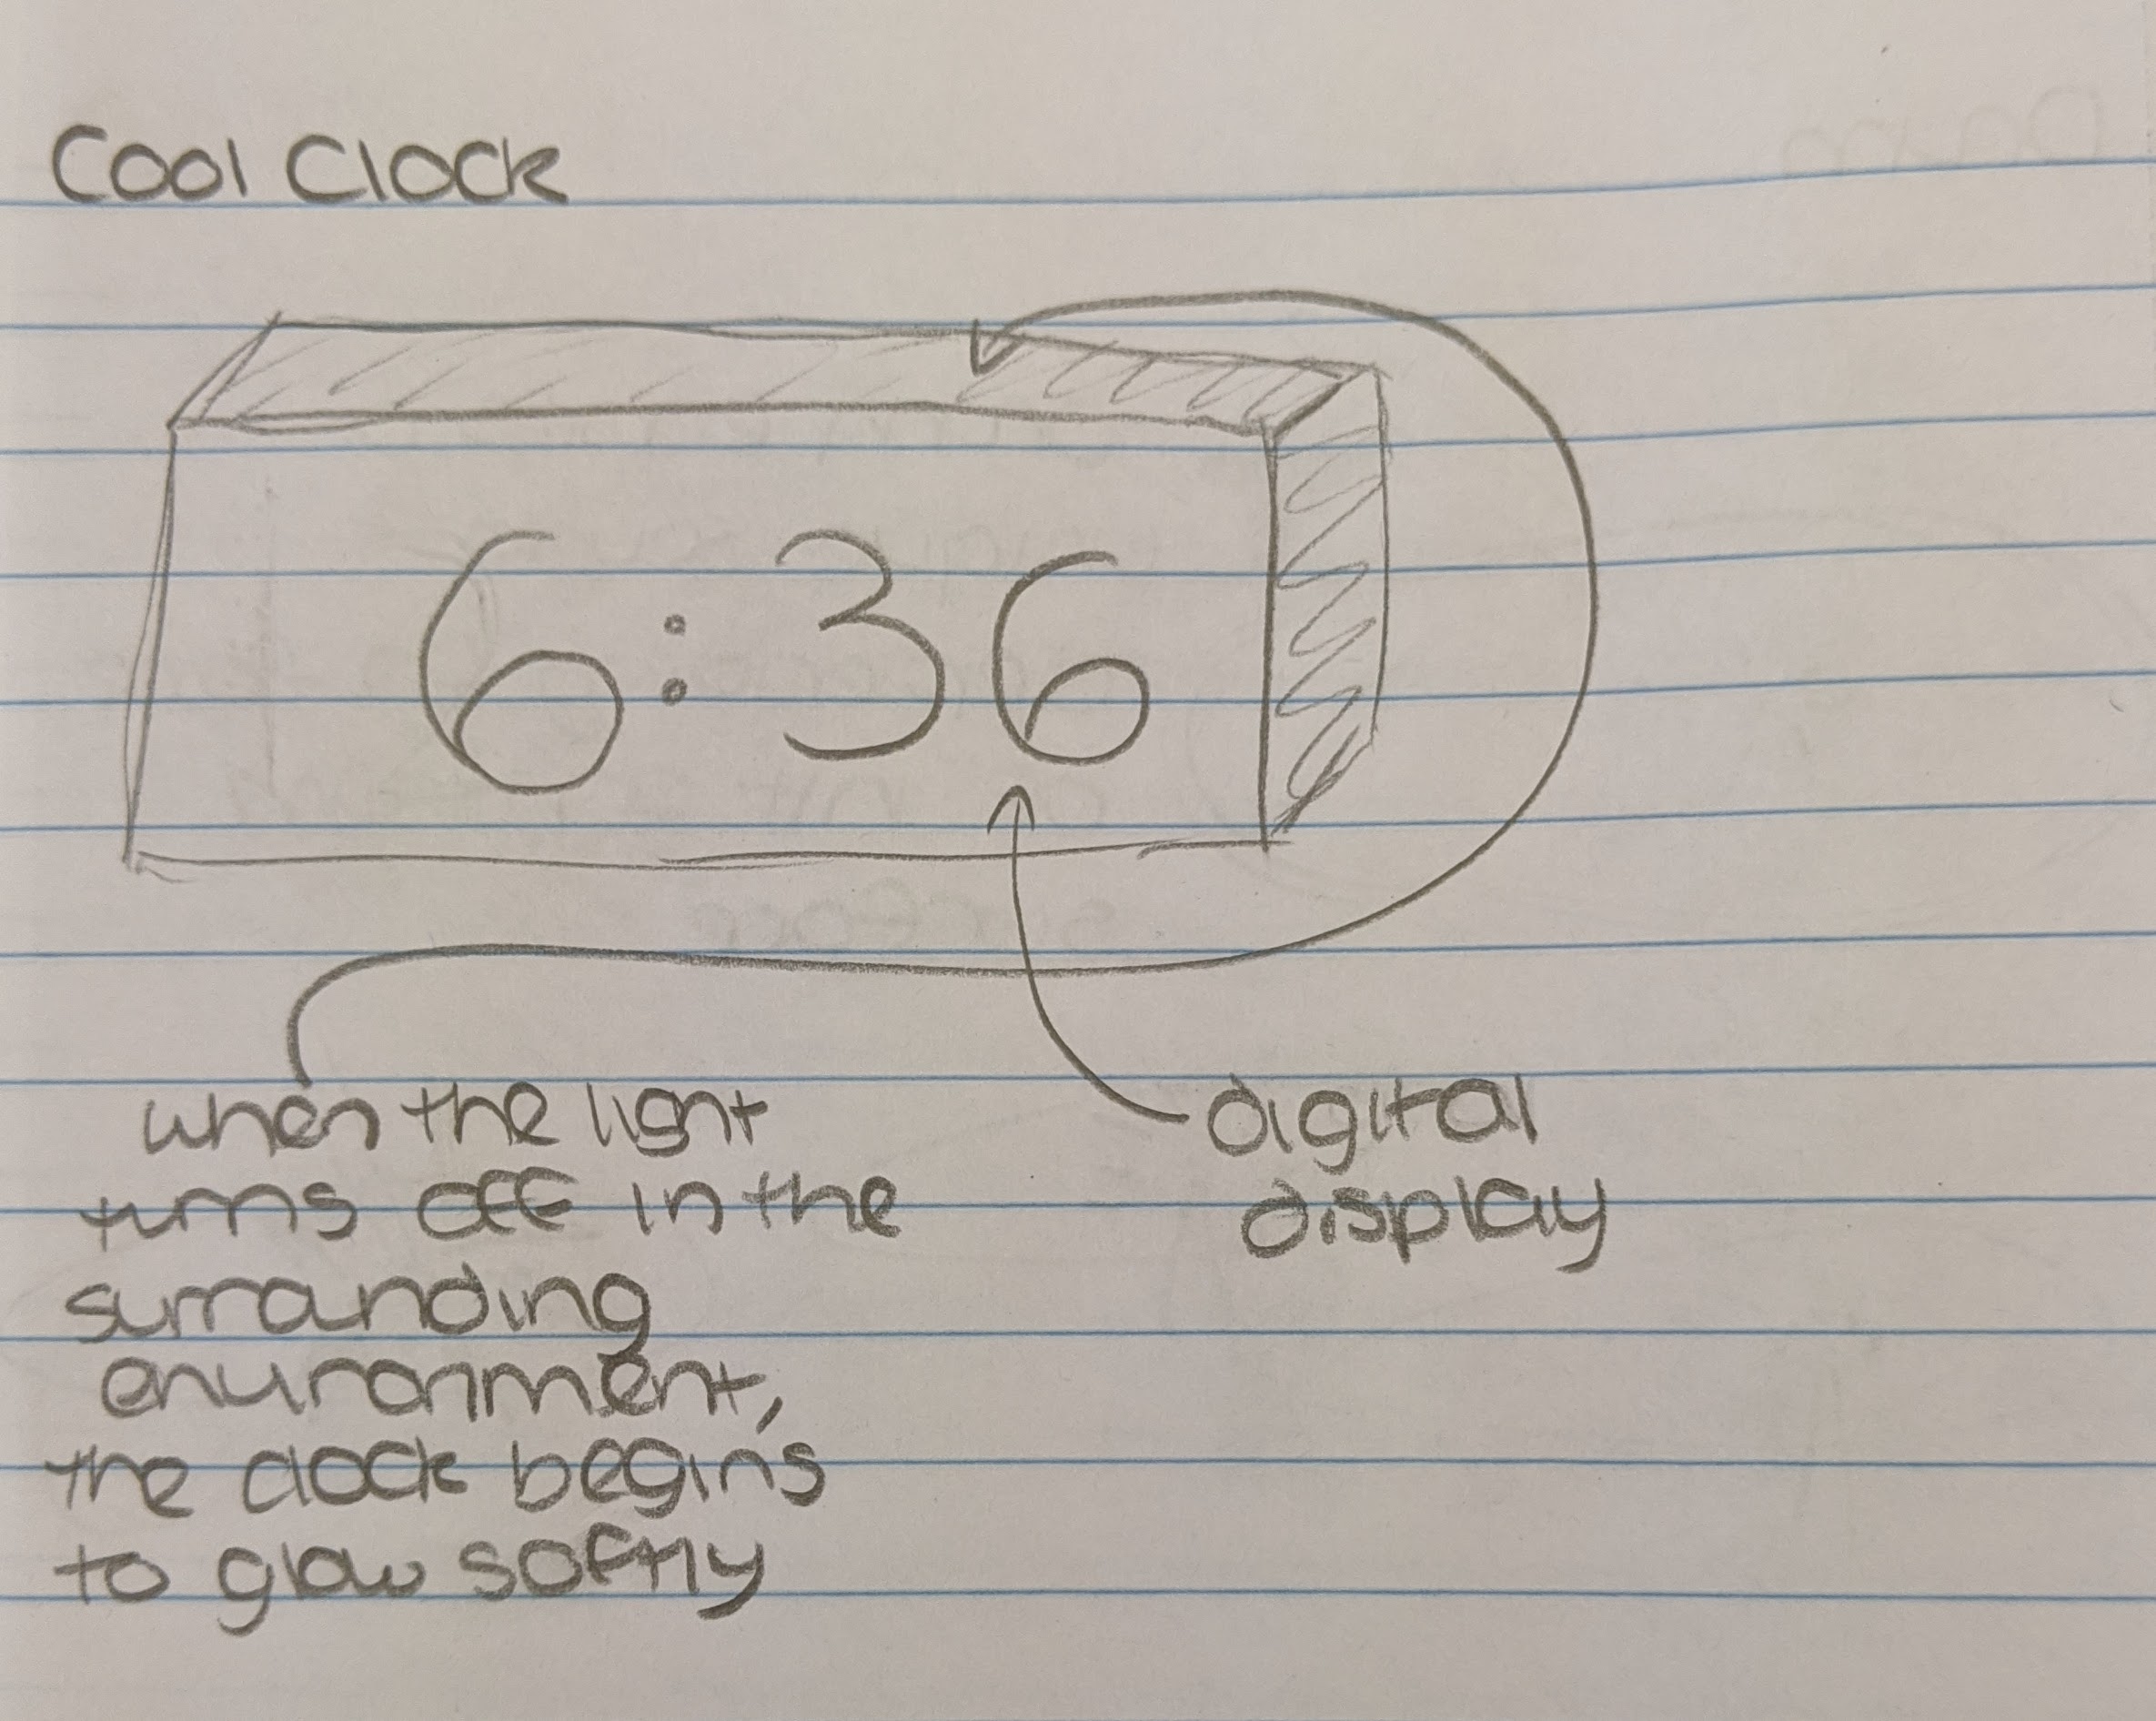 Cool Clock
6:36
when the light
turns off in the
surranding
environment,
the clock begins
to glow softly
digital
display